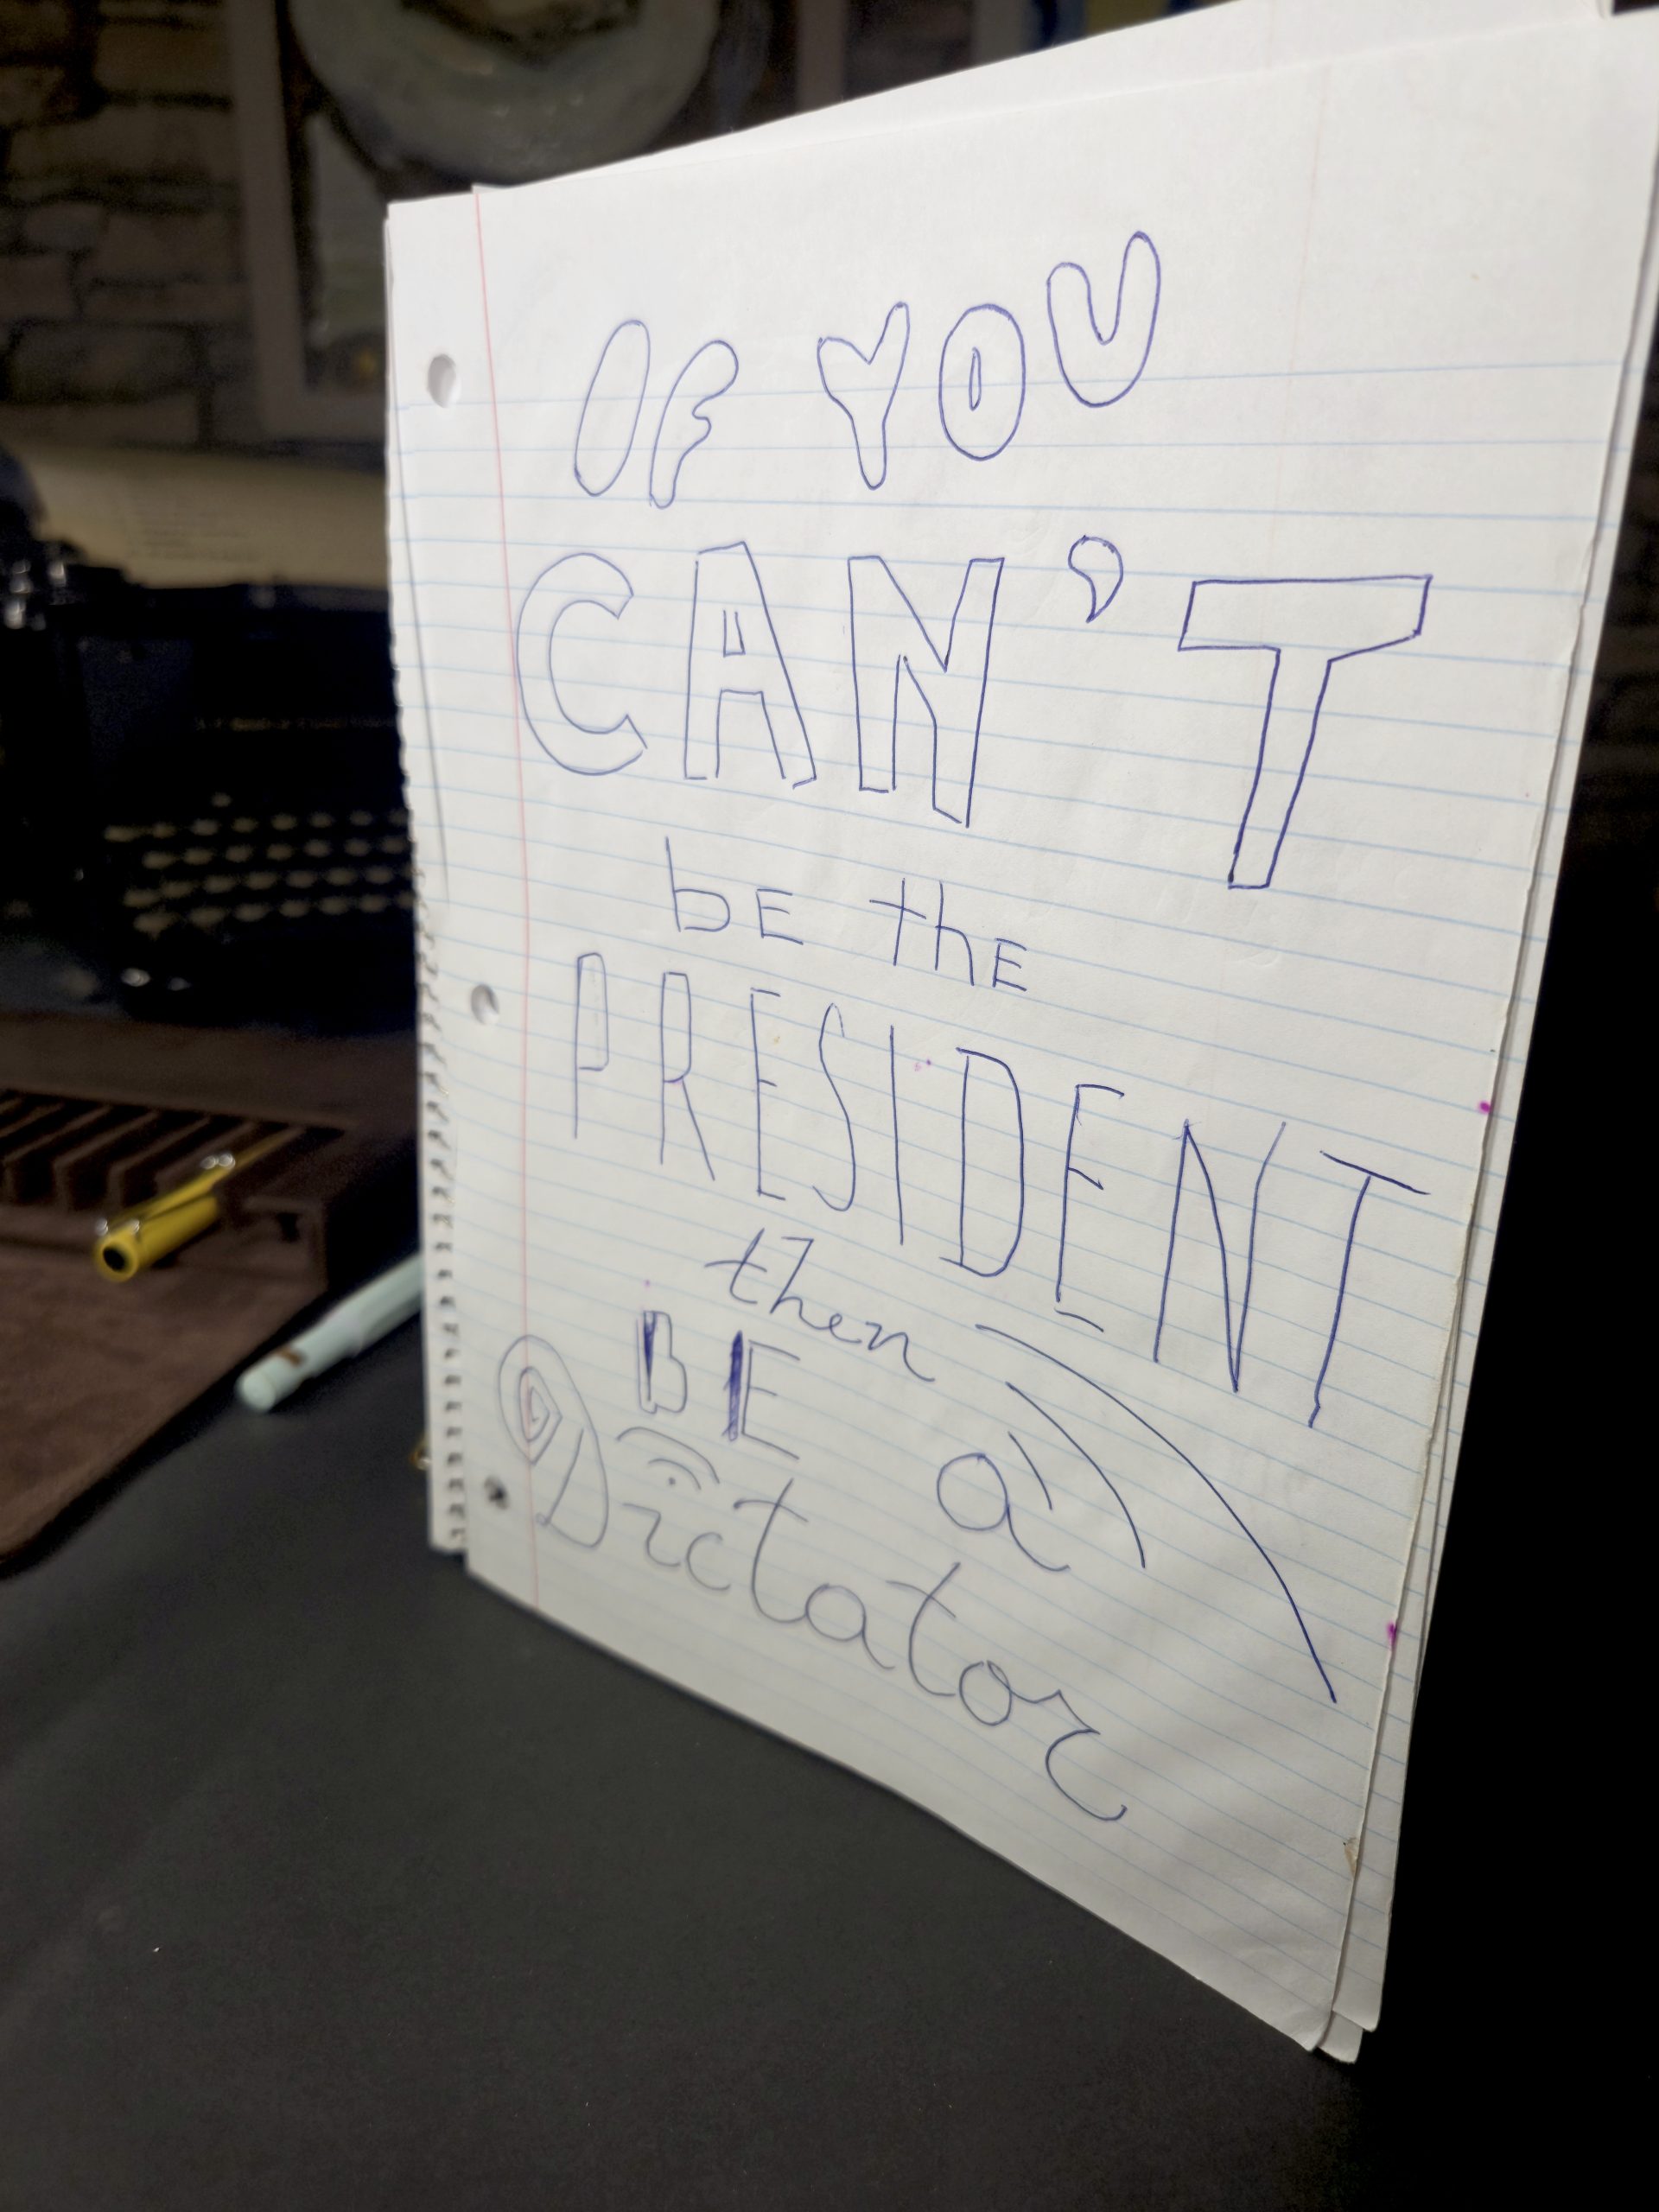 IF YOU
CAN'T
bE thE
PRESIDENT
then
BE a
Dictator